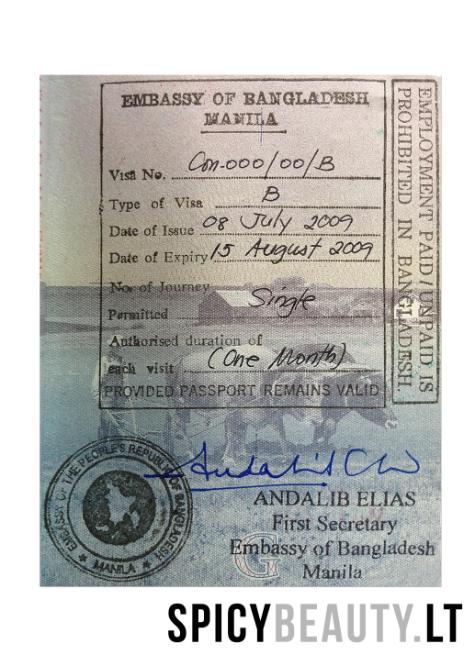 EMBASSY OF BANGLADESH
MANILA
Visa No. Con-000/00/B
Type of Visa B
Date of Issue 08 July 2009
Date of Expiry 15 August 2009
No. of Journey
Permitted Single
Authorised duration of
each visit (One Month)
PROVIDED PASSPORT REMAINS VALID
EMPLOYMENT PAID/UNPAID IS
PROHIBITED IN BANGLADESH.
EMBASSY OF THE PEOPLE'S REPUBLIC OF BANGLADESH
MANILA
ANDALIB ELIAS
First Secretary
Embassy of Bangladesh
Manila
SPICYBEAUTY.LT